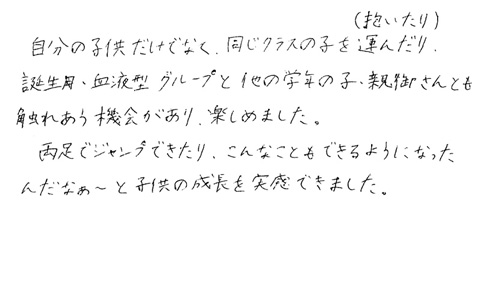 (抱いたり)
自分の子供だけでなく、同じクラスの子を運んだり、
誕生月・血液型グループと他の学年の子、親御さんとも
触れあう機会があり、楽しめました。
両足でジャンプできたり、こんなこともできるようになった
んだなぁ～と子供の成長を実感できました。